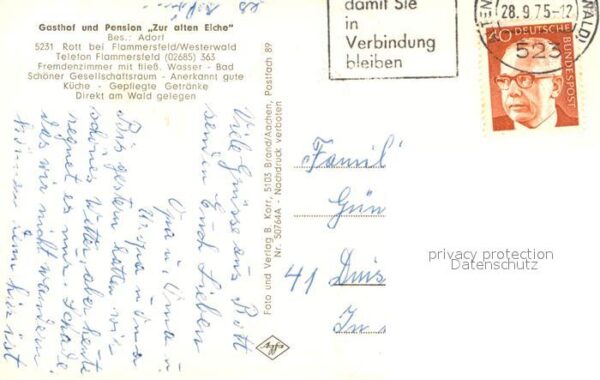 Gasthof und Pension „Zur alten Eiche"
Bes.: Adorf
5231 Rott bei Flammersfeld/Westerwald
Telefon Flammersfeld (02685) 363
Fremdenzimmer mit fließ. Wasser - Bad
Schöner Gesellschaftsraum - Anerkannt gute
Küche - Gepflegte Getränke
Direkt am Wald gelegen
damit Sie
in
Verbindung
bleiben
28.9.75-12
523
WALD)
40
DEUTSCHE BUNDESPOST
Foto und Verlag B. Korr, 5103 Brand/Aachen, Postfach 89
Nr. 50764A - Nachdruck verboten
Viele Grüsse aus Rott
senden Euch Lieben
Opa u. Oma u.
Uropa u Oma
Bis gestern hatten wir
schönes Wetter, aber heute
regnet es nur. Schade
das wir nicht wandern
können denn hier ist
es
Famil
Gün
41 Duis
In
privacy protection
Datenschutz